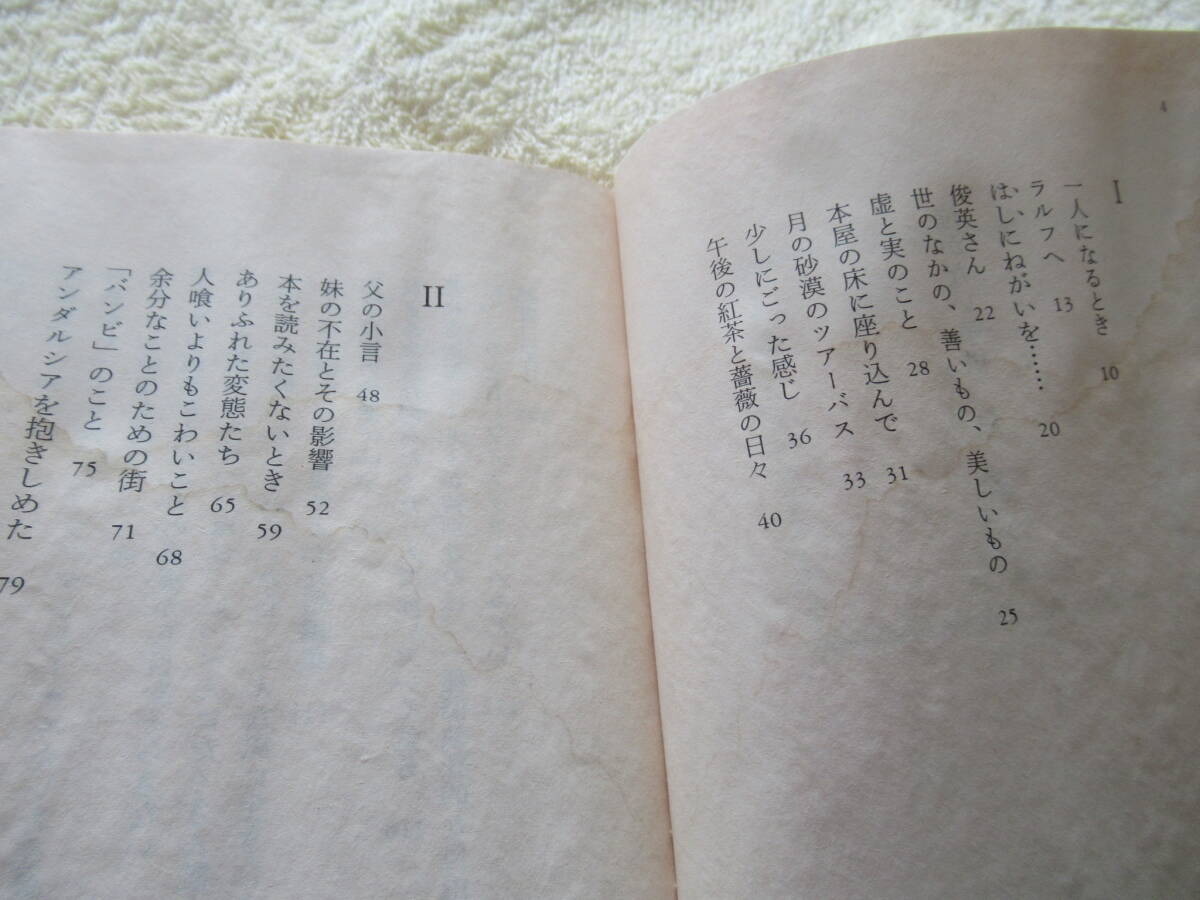 4
I
一人になるとき 10
ラルフへ 13
はしにねがいを…… 20
俊英さん 22
世のなかの、善いもの、美しいもの 25
虚と実のこと 28
本屋の床に座り込んで 31
月の砂漠のツアーバス 33
少しにごった感じ 36
午後の紅茶と薔薇の日々 40
II
父の小言 48
妹の不在とその影響 52
本を読みたくないとき 59
ありふれた変態たち 65
人喰いよりもこわいこと 68
余分なことのための街 71
「バンビ」のこと 75
アンダルシアを抱きしめた 79